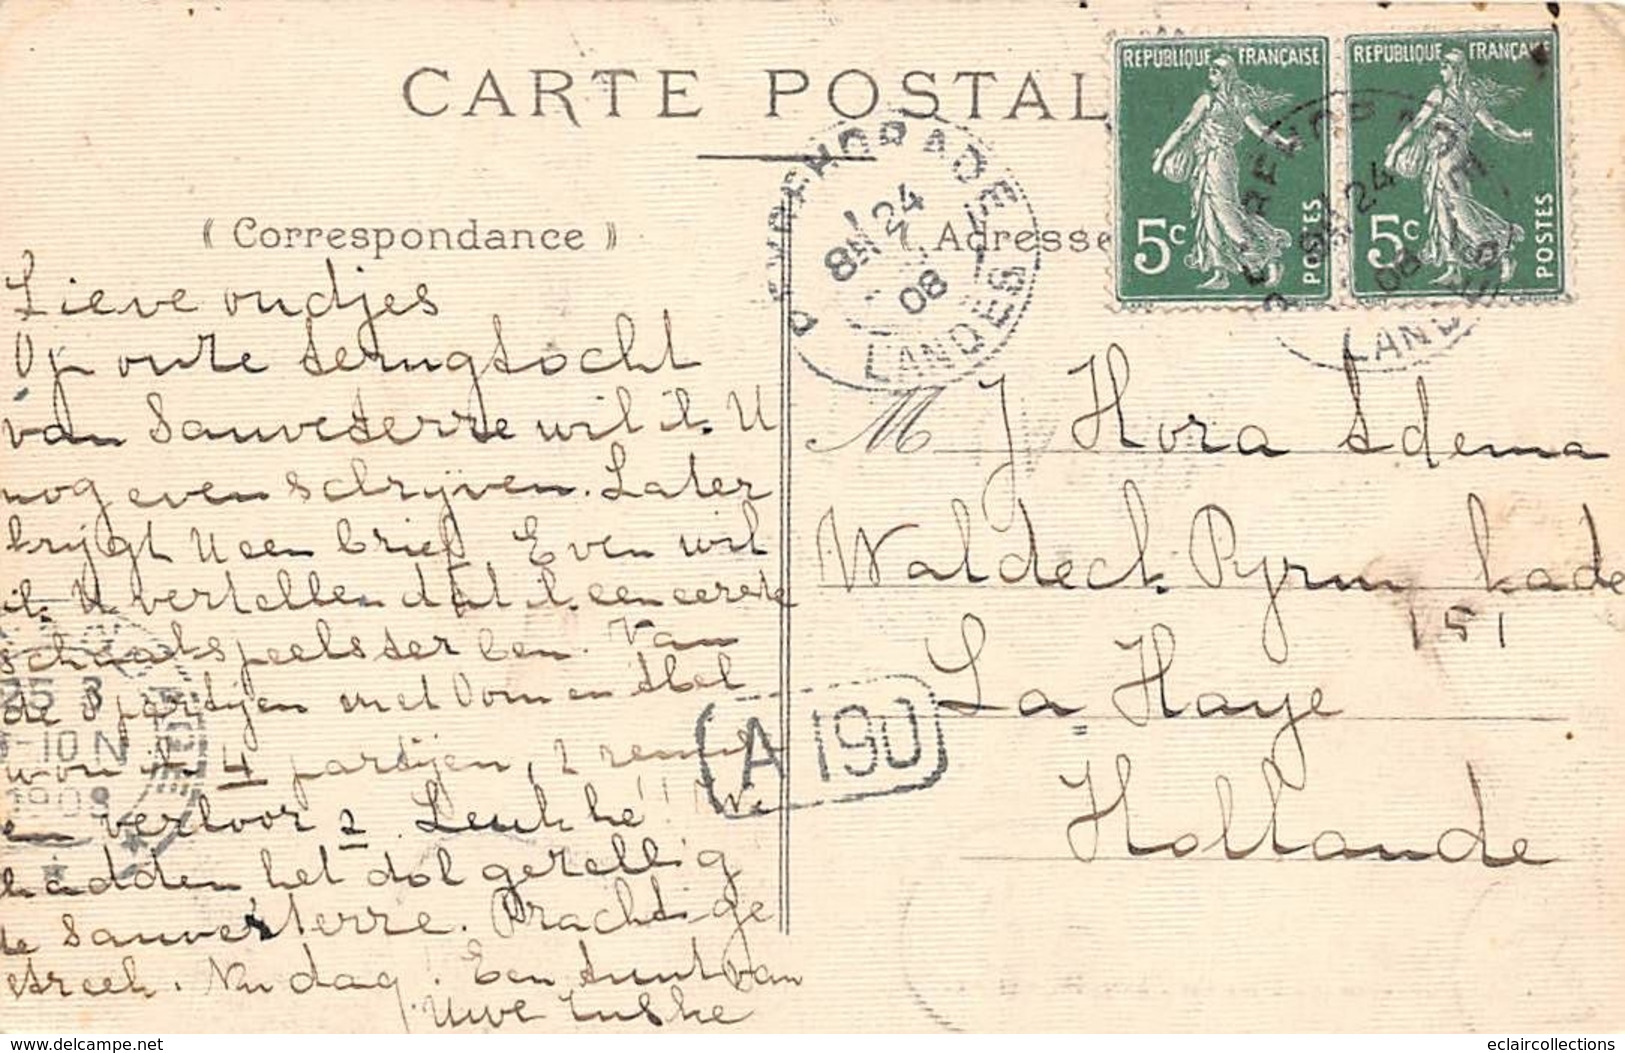 CARTE POSTAL
REPUBLIQUE FRANÇAISE
5c
POSTES
REPUBLIQUE FRANÇAISE
5c
POSTES
PEYREHORADE
8H 24
08
LANDES
PEYREHORADE
24
08
LANDES
(Correspondance)
(Adresse
Lieve oudjes
Op onze terugtocht
van Sauveterre wil ik U
nog even schrijven. Later
krijgt U een brief. Even wil
ik U vertellen dat ik een eerste
schaakspeelster ben. Van
de 8 partijen met Oom en
won ik 4 partijen, 2 remise
en verloor 2. Leuk hé!! We
hadden het dol gezellig
te Sauveterre. Prachtige
streek. Nu dag! Een zunt van
Uwe
M J Hora Adema
Waldeck Pyrm kade
151
La Haye
Hollande
A 190
25 3
-10 N
1908
eclaircollections
delcampe.net